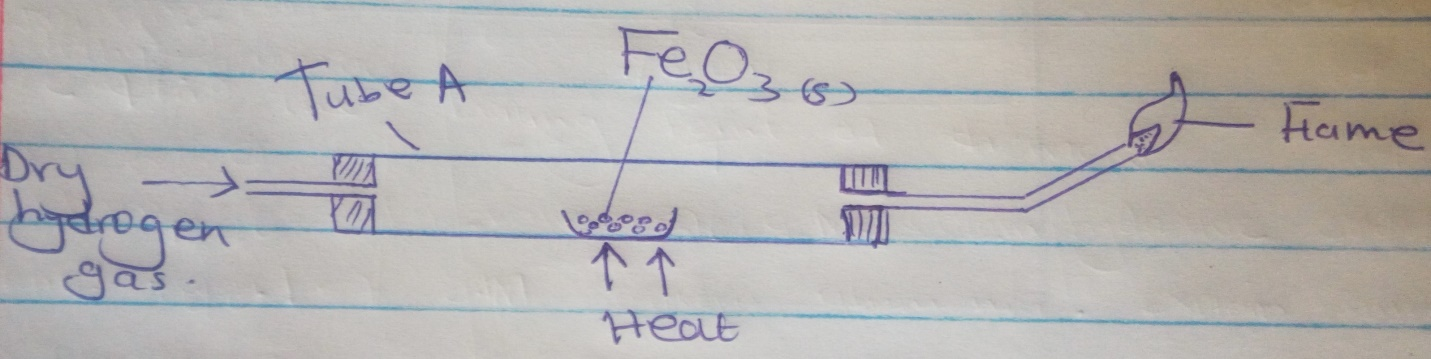 Tube A
Fe₂O₃ (s)
Flame
Dry
hydrogen
gas.
Heat